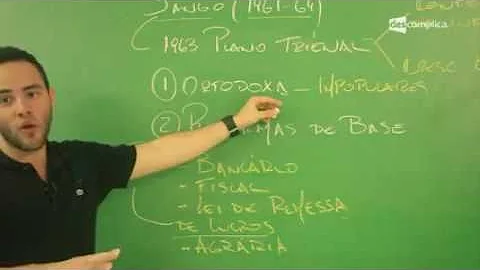 JANGO (1961-64)
descomplica.
1963 PLANO TRIENAL
① ORTODOXA - IMPOPULARES
② DE BASE
- BANCÁRIO
- FISCAL
- LEI DE REMESSA
DE LUCROS
- AGRÁRIA